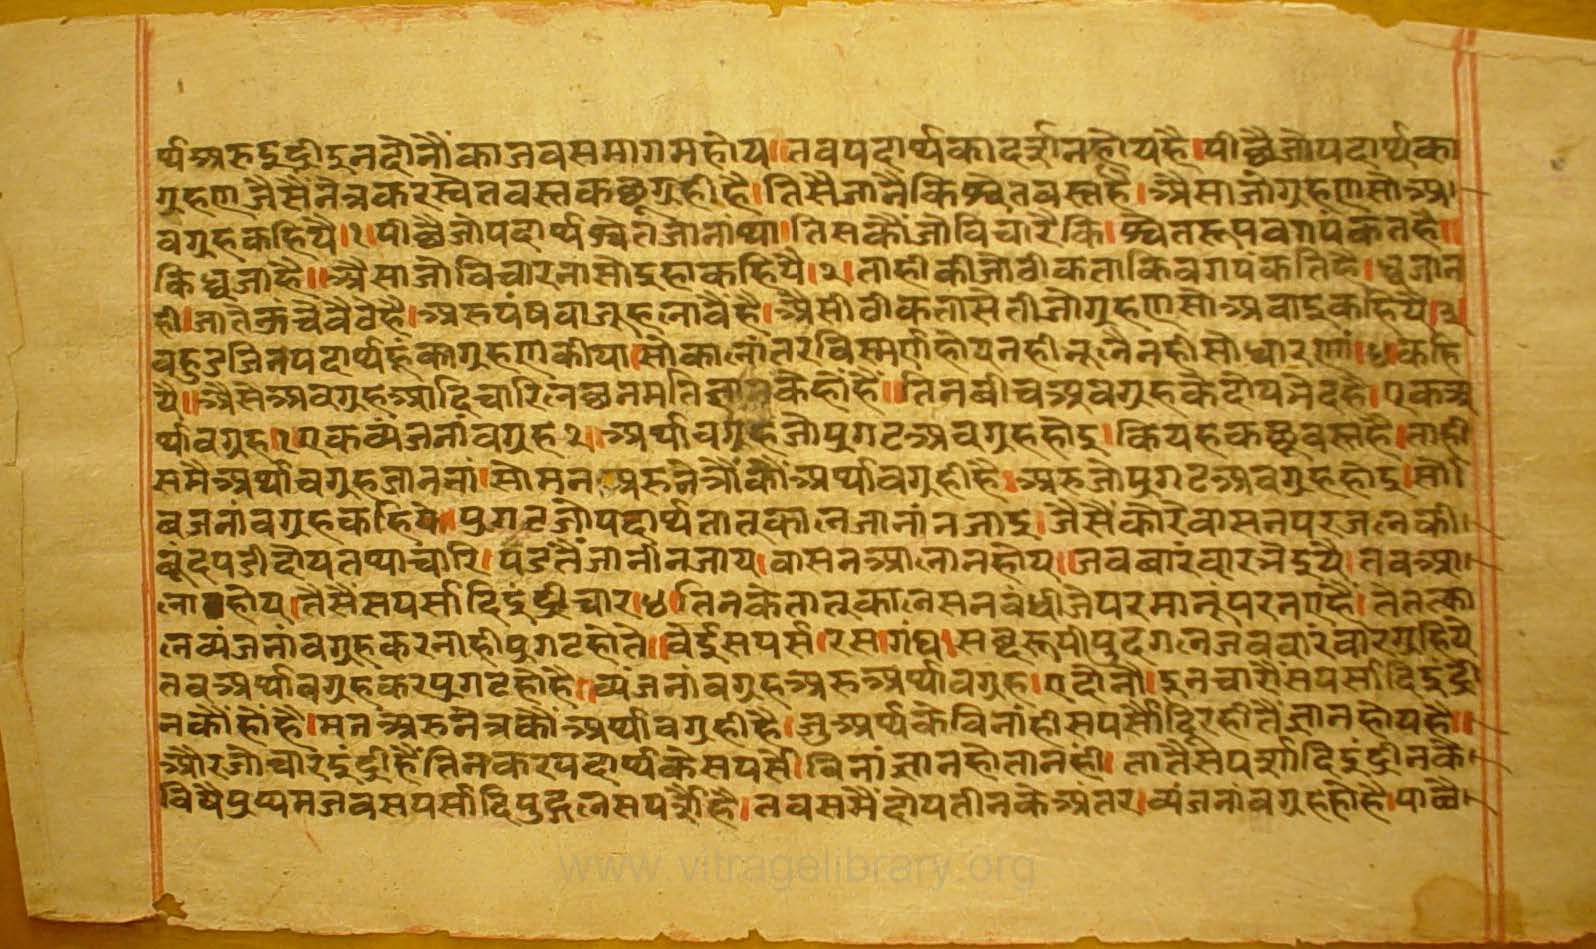 र्थअरुइंद्रीइनदोनौंकाजबसमागमहोय॥तबपदार्थकादर्शनहोयहै।पीछैजोपदार्थका
ग्रहणजैसैंनेत्रकरस्वेतवस्तकछूग्रहीहै।तिसैजानैकिश्वेतवस्तहै।अैसाजोग्रहणसोअ
वग्रहकहियै।१।पीछैजोपदार्थश्वेतजांनाथा।तिसकौंजोविचारैकि।श्वेतरूपबगपंकतहै॥
किध्वजाहै॥अैसाजोविचारनासोइहाकहियै।२।ताहीकीजोवीकताकिबगपंकतिहै।ध्वजान
ही।जातैऊंचैवैवेहै।अरुपंषवाजुहलावैहै।अैसीवीकतासेतीजोग्रहणसोअवाइकहियै।३
बहुडजिनपदार्थहूंकाग्रहणकीया।सोकालांतरविस्मर्णहोयनहीभूलैनहीसोधारणां।४।कहि
यै॥अैसेअवग्रहआदिचारिलछनमतिज्ञानकेहोंहैं॥तिनबीचअवग्रहकेदोयभेदहै।एकअ
र्थावग्रह।१।एकव्यंजनांवग्रह२।अर्थावग्रहजोप्रगटअवग्रहहोइ।कियहकछूवस्तहै।ताही
समैअर्थावग्रहजाननां।सोमनअरुनेत्रौंकौंअर्थावग्रहीहै।अरुजोप्रगटअवग्रहहोइ।सो
वजनांवग्रहकहियै।प्रगटजोपदार्थतातकालजानांनजाइ।जैसैंकोरेवासनपरजलकी
बूंदपडीदोयतथाचारि।पडतैंजानीनजाय।वासनआलानहोय॥जबबारंवारभेइयै।तबआ
लाहोय।तैसैंसपर्सादिइंद्रीचार।४।तिनकेतातकालसनबंधीजेपरमानूंपरनएहैं।तेतत्का
लव्यंजनांवग्रहकरनाहीप्रगटहोते॥वेईसपर्स।रस।गंध।सब्दरूपीपुदगलजबबारंवारग्रहियै
तबअर्थावग्रहकरप्रगटहोहै।व्यंजनांवग्रहअरुअर्थावग्रह।एदोनौ।इनचारौंसपर्सादिइंद्री
नकौंहोंहै।मनअरुनेत्रकौंअर्थावग्रहीहै।जुअर्थकेविनांहीसपर्सौदूरहीतैंज्ञानहोयहै॥
औरजोचारइंद्रीहैंतिनकरपदार्थकेसपर्सीविनांज्ञानहोतानंही।तातैसपर्शादिइंद्रीनकै
विषैप्रथमजबसपर्सादिपुद्गलसपर्शैहै।तबसमैंदोयतीनकेअंतर।व्यंजनांवग्रहहोहै।पाछै
www.vitragelibrary.org